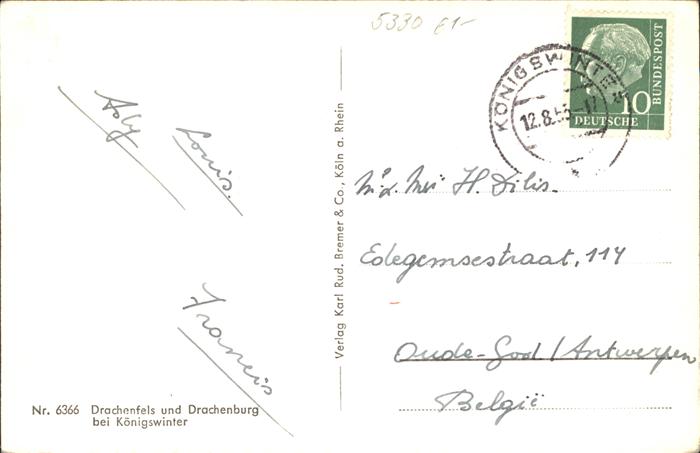 5330 £1-
BUNDESPOST
10
DEUTSCHE
KÖNIGSWINTER
12.8.55-17
Louis.
Francis
H. Dilis.
Edegemsestraat, 114
Oude-God / Antwerpen
België
Verlag Karl Rud. Bremer & Co., Köln a. Rhein
Nr. 6366 Drachenfels und Drachenburg
bei Königswinter